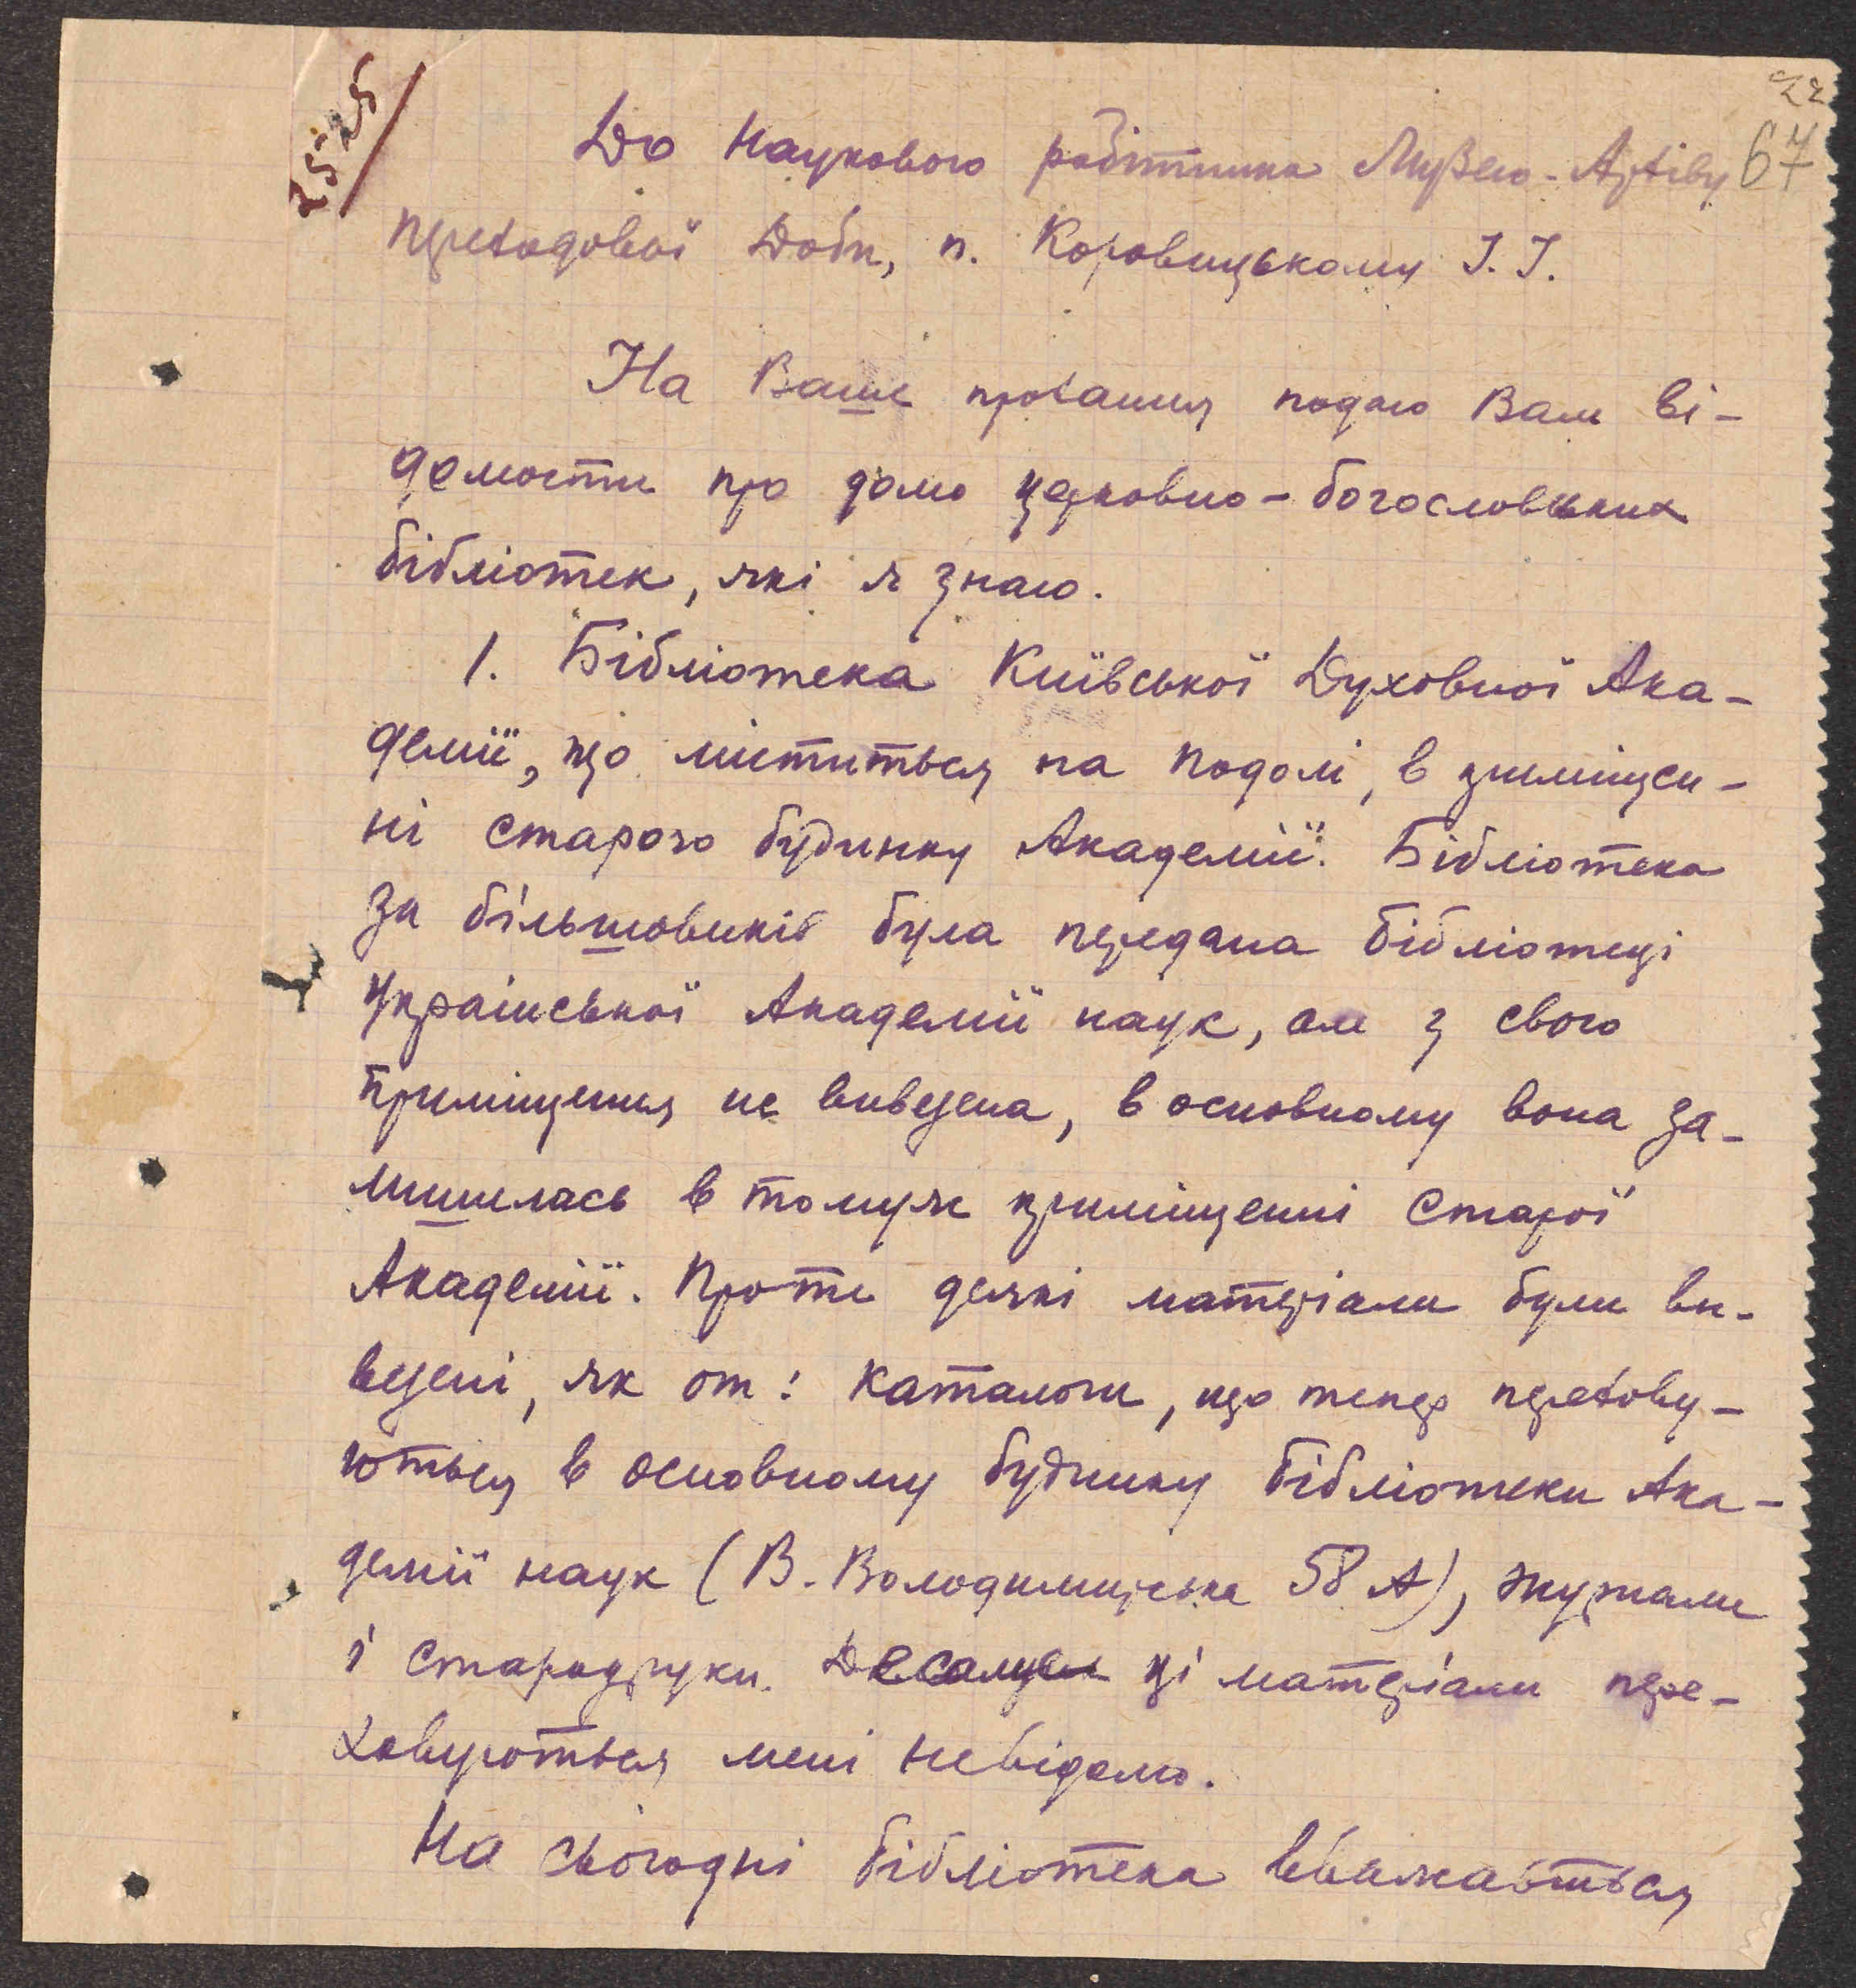 25-25
22
67
До Наукового робітника Музею-Архіву
Переходової Доби, п. Коровицькому І.І.
На Ваше прохання подаю Вам ві-
домости про долю церковно-богословських
бібліотек, які я знаю.
1. Бібліотека Київської Духовної Ака-
демії, що міститься на Подолі, в приміщен-
ні старого будинку Академії. Бібліотека
за більшовиків була передана бібліотеці
Української Академії наук, але з свого
приміщення не вивезена, в основному вона за-
лишилась в тому ж приміщенні Старої
Академії. Проте деякі матеріали були ви-
везені, як от: каталоги, що тепер перехову-
ються в основному будинку бібліотеки Ака-
демії наук (В. Володимирська 58 А), журнали
і стародруки. Де саме ці матеріали пере-
ховуються мені невідомо.
На сьогодні бібліотека вважається